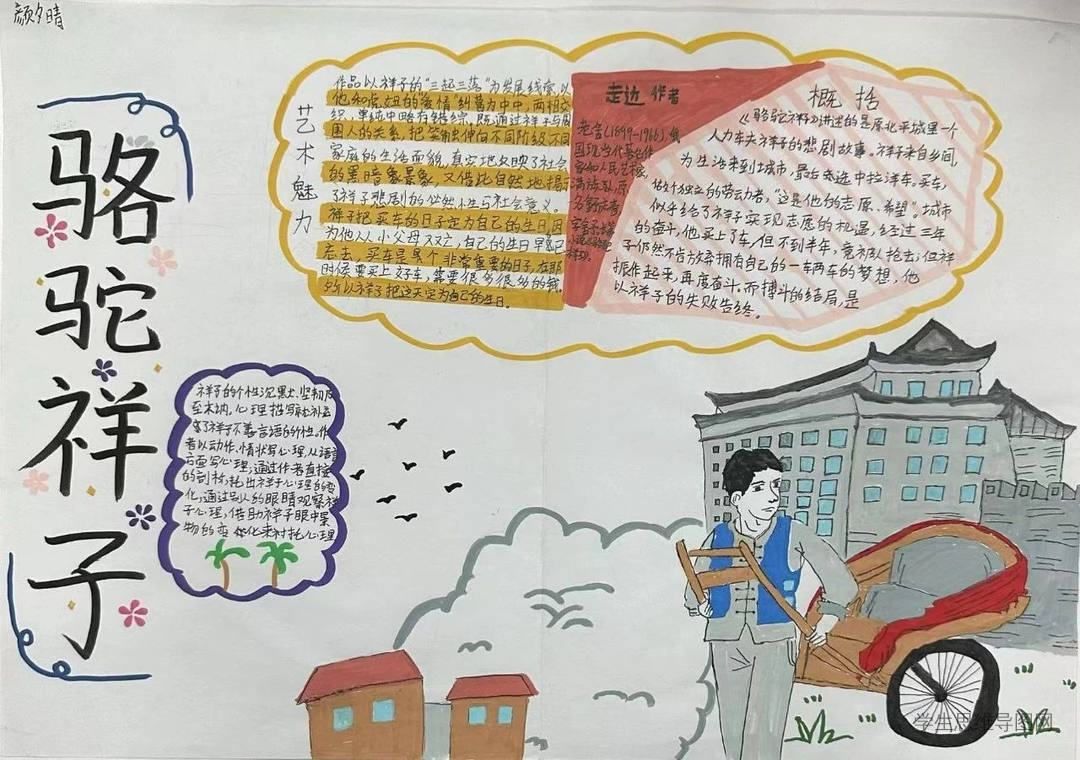 颜夕晴
骆驼祥子
艺术魅力
作品以祥子的“三起三落”为发展线索,以
他和虎妞的“爱情”纠葛为中中,两相交
织,单纯中略有错综,既通过祥子与周
围人的关系,把笔触伸向不同阶级不同
家庭的生活面貌,真实地反映了社会
的黑暗景象,又借此自然地揭
了祥子悲剧的必然性与社会意义。
祥子把买车的日子定为自己的生日,因
为他从小父母双亡,自己的生日早就记
忘去,买车是一个非常重要的日子,在那
时候要买上好车,需要很多很多的钱
所以祥子把这天定为自己的生日。
走边 作者
老舍(1899-1966),我
国现当代著名作
家如人民艺术家,
满族,
概括
《骆驼祥子》讲述的是原北平城里一个
人力车夫祥子的悲剧故事。祥子来自乡间,
为生活来到城市,最后来选中拉洋车,买车,
做个独立的劳动者,“这是他的志愿、希望”。城市
似乎给了祥子实现志愿的机遇,经过三年
的奋斗,他买上了车,但不到半年,竟被人抢去;但祥
子仍然不肯放弃拥有自己的一车两车的梦想,他
振作起来,再度奋斗,而搏斗的结局,是
以祥子的失败告终。
祥子的个性沉默、坚韧及
至木讷。心理描写就补足
了祥子不善言语的个性,作
者以动作、情状写心理,从语言
方面写心理;通过作者直接
的剖析,托出祥子心理的变
化,通过别人的眼睛观察祥
子心理,借助祥子眼中景
物的变化来衬托心理
学生思维导图网